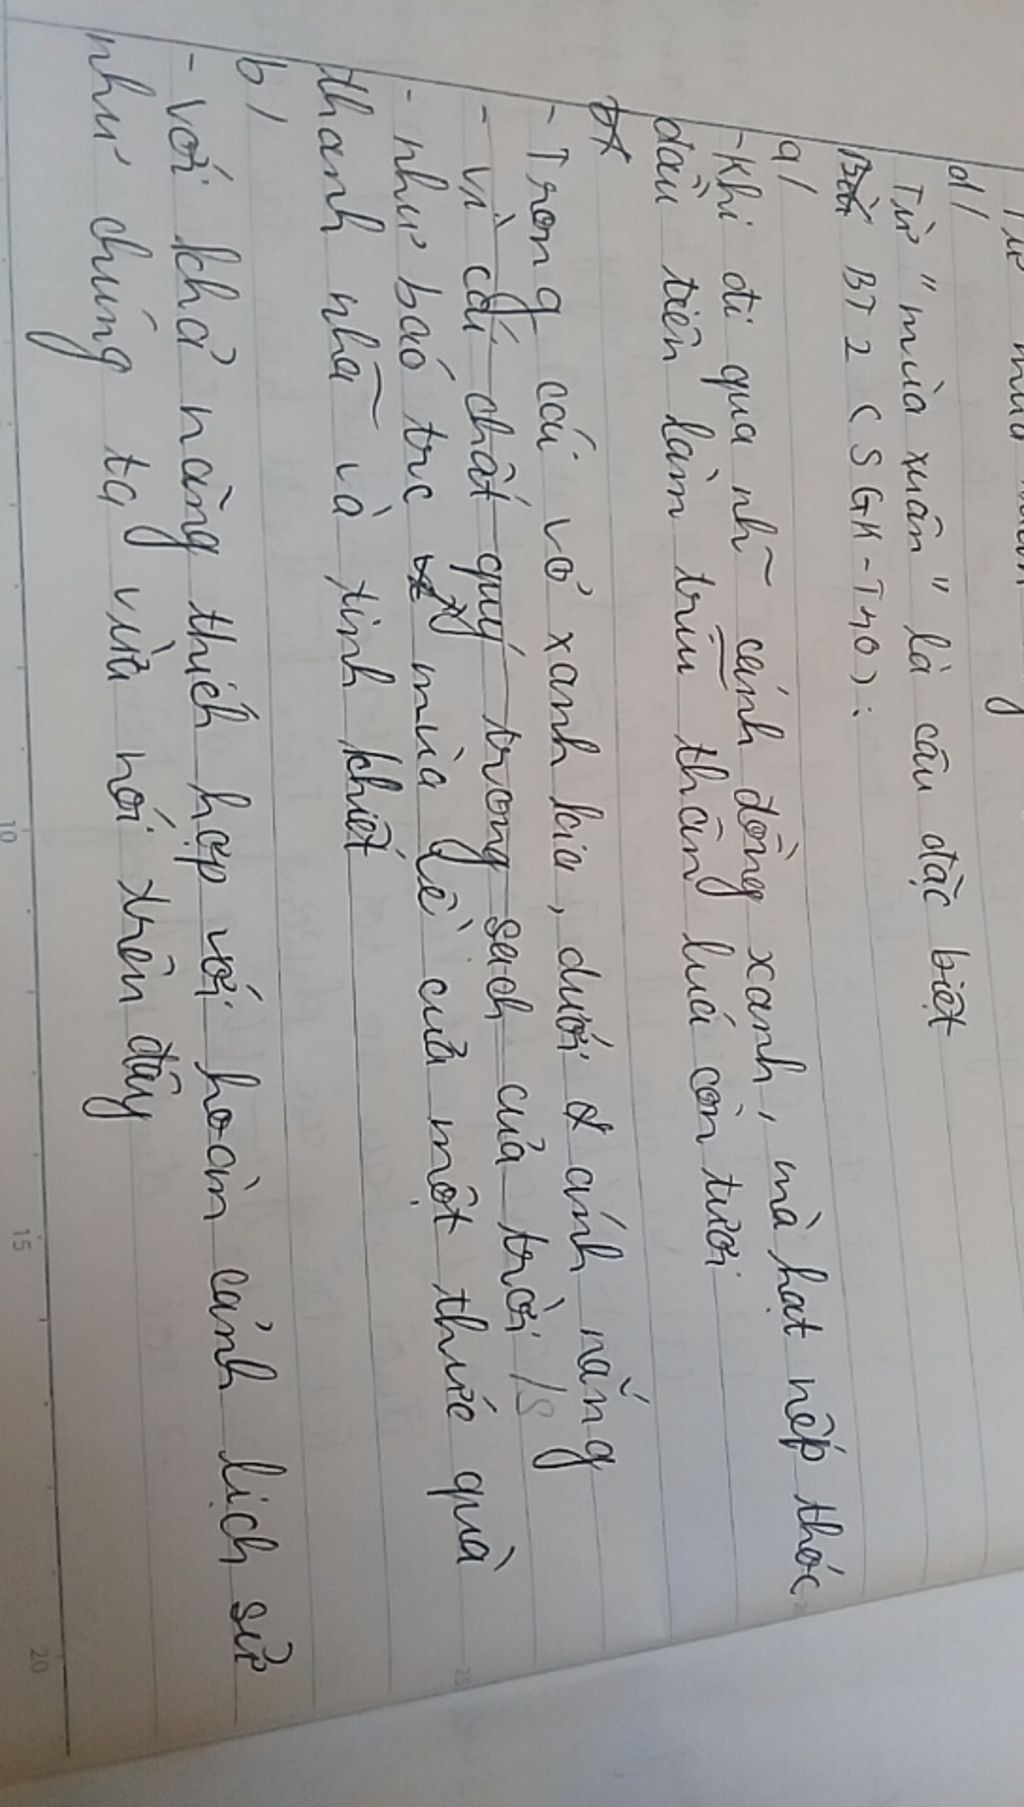 d/
Từ "mùa xuân" là câu đặc biệt
BT 2 (SGK-T40):
a/
- Khi đi qua nhữ cánh đồng xanh, mà hạt nếp thóc
đầu tiên làm trĩu thân lúa còn tươi
- Trong cái vỏ xanh kia, dưới ánh nắng
- Vì cái chất quý trong sạch của trời
- như báo trc mùa về của một thức quà
thanh nhã và tinh khiết
b/
- Với khả năng thích hợp với hoàn cảnh lịch sử
như chúng ta vừa nói trên đây
10
15
20
25